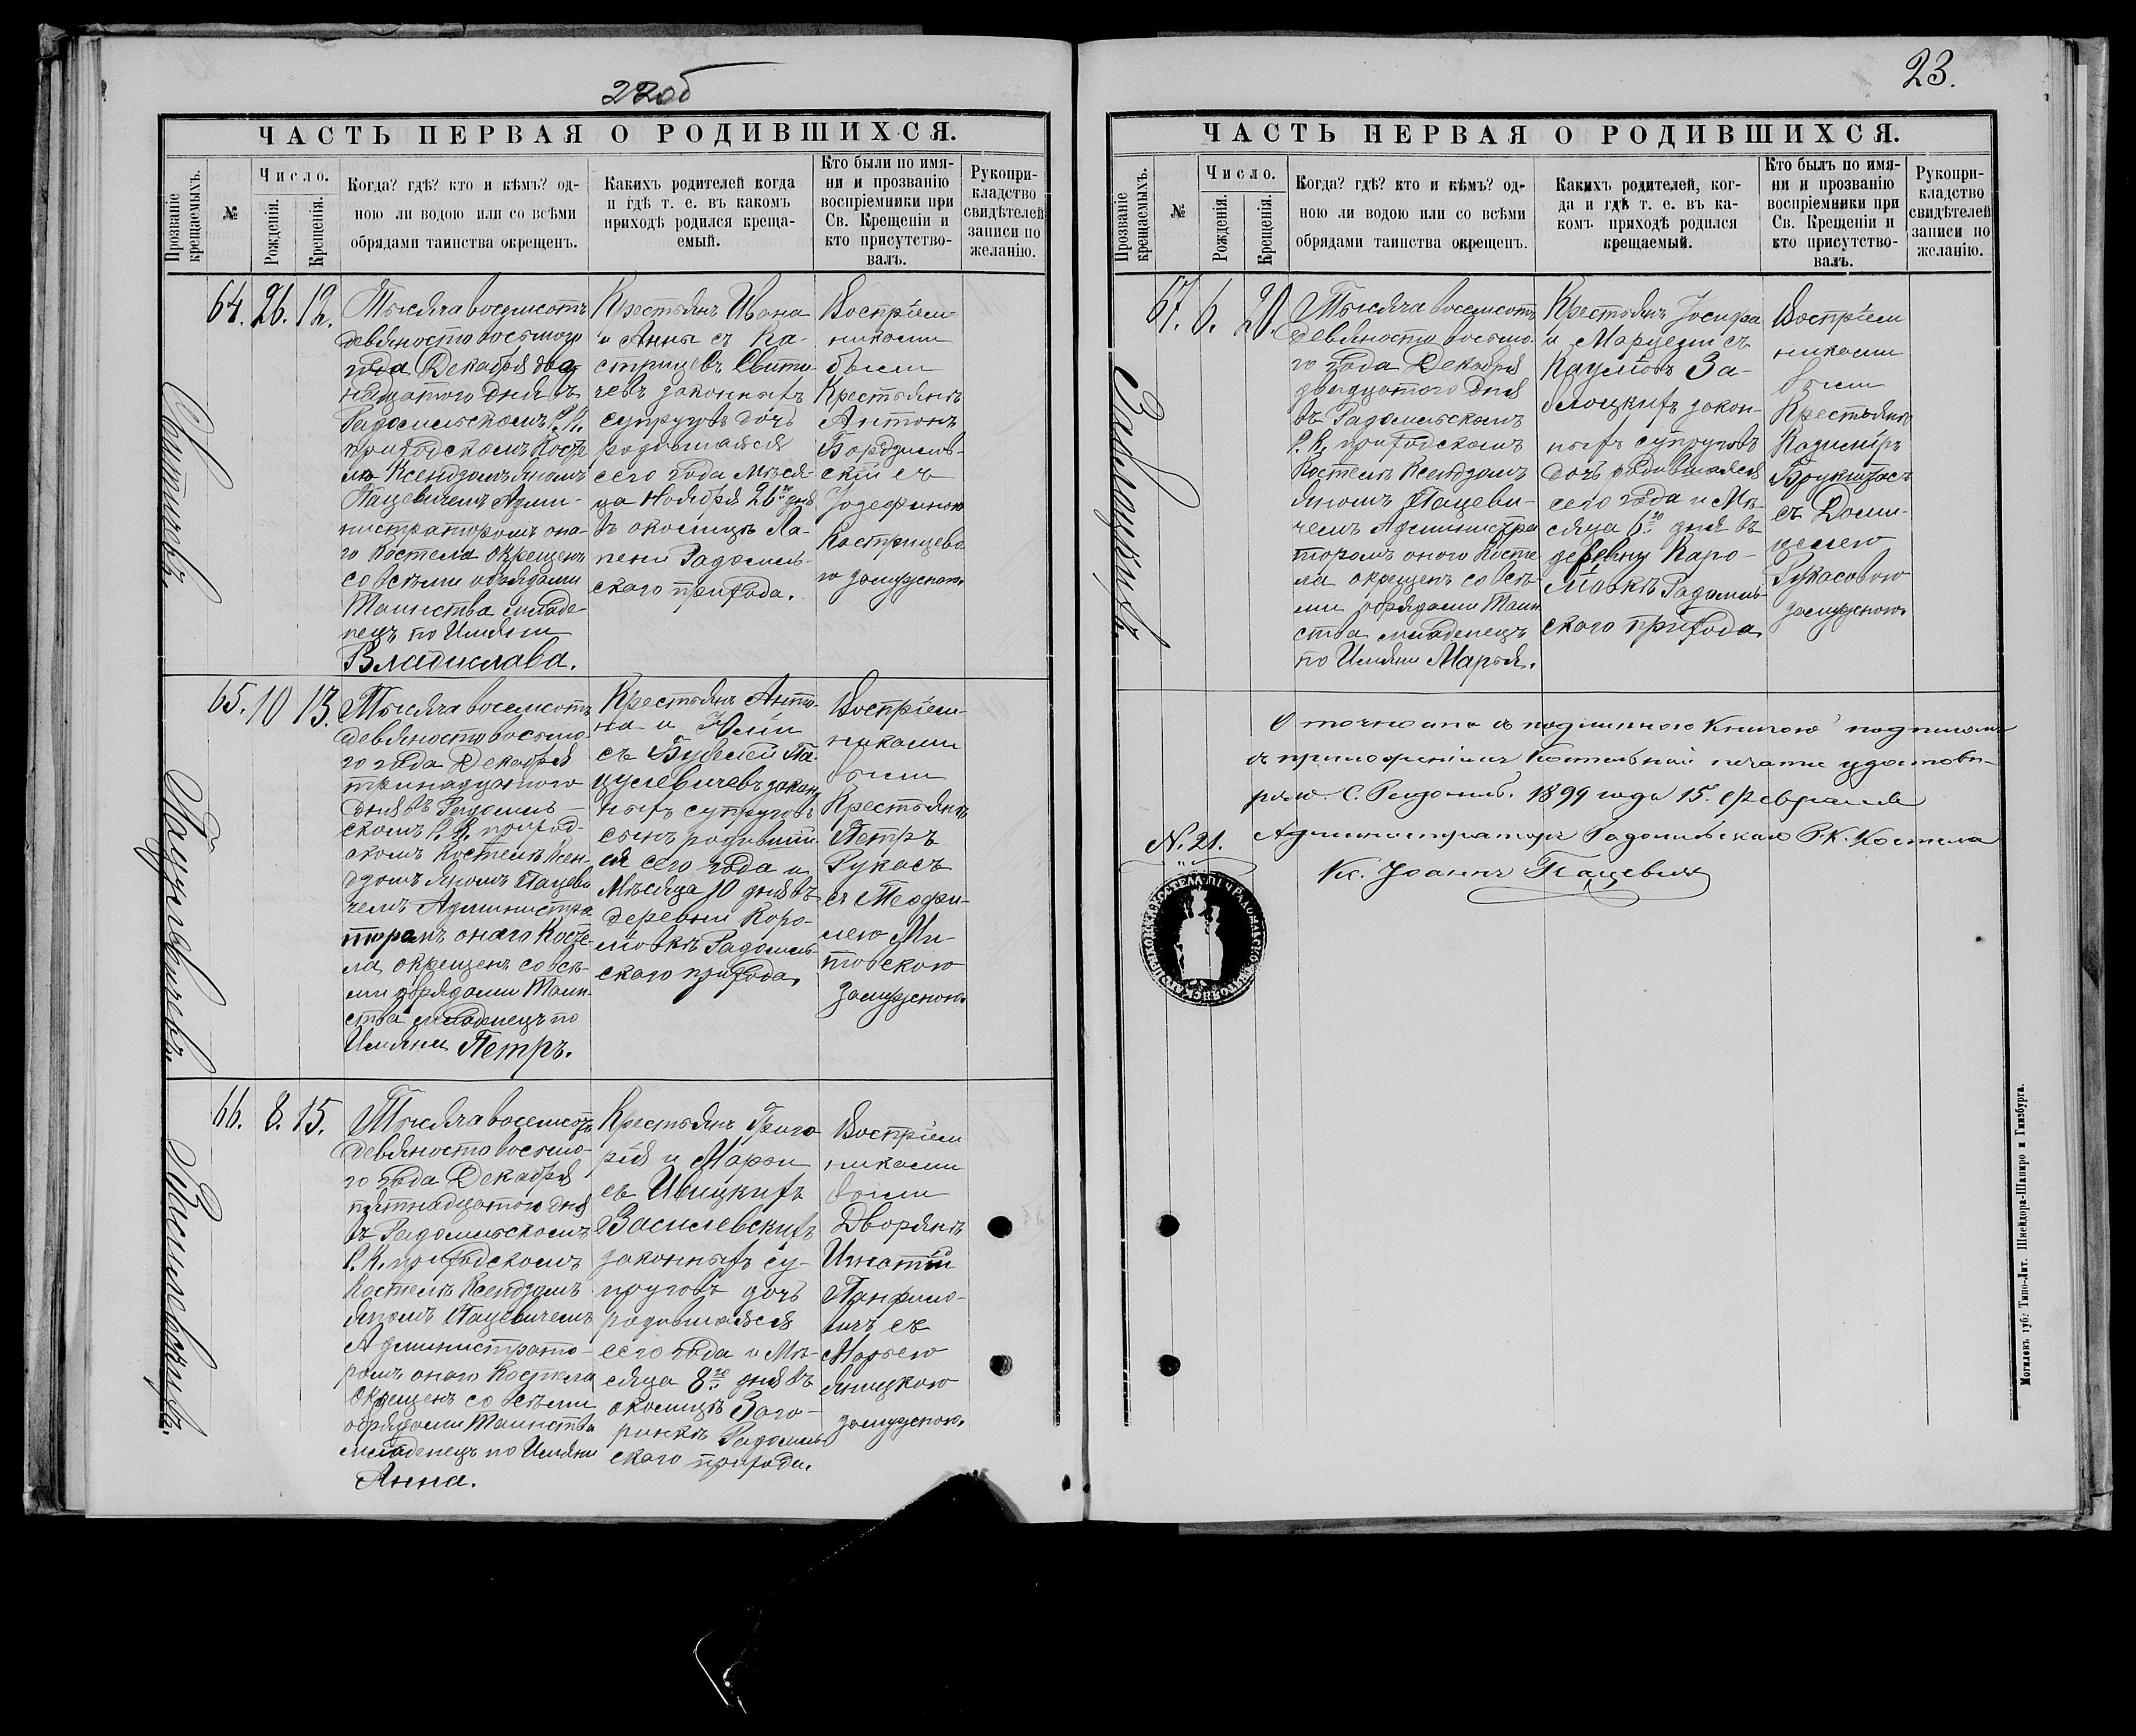 22об
ЧАСТЬ ПЕРВАЯ О РОДИВШИХСЯ.
Прозваніе крещаемыхъ.
№
Число.
Рожденія.
Крещенія.
Когда? гдѣ? кто и кѣмъ? од-
ною ли водою или со всѣми
обрядами таинства окрещенъ.
Какихъ родителей когда
и гдѣ т. е. въ какомъ
приходѣ родился креща-
емый.
Кто были по имя-
ни и прозванію
воспріемники при
Св. Крещеніи и
кто присутство-
валъ.
Рукопри-
кладство
свидѣтелей
записи по
желанію.
Свитичевъ.
64. 26. 12.
Тысяча восемсотъ
девяносто восьмого
года Декабря два-
надцатого дня въ
Радомльскомъ Р. К.
приходскомъ Косте
лѣ Ксендзомъ Яномъ
Пацевичемъ Адми-
нистраторомъ она-
го Костела окрещенъ
со всѣми обрядами
Таинства младе-
нецъ по Имяни
Владислава.
Крестьянъ Ивана
и Анны съ Ка-
стрицевъ Свити-
чевъ законныхъ
супруговъ дочь
родившаяся
сего года мѣся-
ца Ноября 26го дня
въ околицѣ Ла-
пени Радомль-
ского прихода.
Воспріем
никами
были
Крестьянъ
Антонъ
Бордзилов-
скій съ
Юзефиною
Кастрицево
ю замужною.
Пацукевичевъ.
65. 10 13.
Тысяча восемсотъ
девяносто восьмо-
го года Декабря
тринадцатого
дня въ Радомль-
скомъ Р. К. приход-
скомъ Костелѣ Ксен-
дзомъ Яномъ Пацеви
чемъ Администра-
торомъ онаго Косте-
ла окрещенъ со всѣ-
ми обрядами Таин-
ства младенецъ по
Имяни Петръ.
Крестьянъ Анто-
на и Юліи
съ Па-
цукевичевъ закон
ныхъ супруговъ
сынъ родившій
ся сего года и
Мѣсяца 10 дня въ
деревни Коро-
Радомль-
ского прихода.
Воспріем-
никами
были
Крестьянъ
Петръ
Лукасъ
съ Теофи-
лею Ми-
товскою
замужною.
Василевскихъ.
66. 8. 15.
Тысяча восемсотъ
девяносто восьмо-
го года Декабря
пятнадцатого дня
въ Радомльскомъ
Р. К. приходскомъ
Костелѣ Ксендзомъ
Яномъ Пацевичемъ
Администрато-
ромъ онаго Костела
окрещенъ со всѣми
обрядами Таинства
младенецъ по Имяни
Анна.
Крестьянъ Григо
рія и Марьи
съ Ивицкихъ
Василевскихъ
законныхъ су-
пруговъ дочь
родившаяся
сего года и Мѣ-
сяца 8го дня въ
околицѣ Заго-
ринкѣ Радомль-
ского прихода.
Воспріем
никами
были
Дворянъ
Игнатій
Панфило-
вичъ съ
Марьею
Яницкою
замужною.
23.
ЧАСТЬ ПЕРВАЯ О РОДИВШИХСЯ.
Прозваніе крещаемыхъ.
№
Число.
Рожденія.
Крещенія.
Когда? гдѣ? кто и кѣмъ? од-
ною ли водою или со всѣми
обрядами таинства окрещенъ.
Какихъ родителей, ког-
да и гдѣ т. е. въ ка-
комъ приходѣ родился
крещаемый.
Кто былъ по имя-
ни и прозванію
воспріемники при
Св. Крещеніи и
кто присутство-
валъ.
Рукопри-
кладство
свидѣтелей
записи по
желанію.
Заблоцкихъ.
67. 6. 20.
Тысяча восемсотъ
девяносто восьмо-
го года Декабря
двадцатого дня
въ Радомльскомъ
Р. К. приходскомъ
Костелѣ Ксендзомъ
Яномъ Пацеви-
чемъ Администра
торомъ оного Косте-
ла окрещенъ со всѣ-
ми обрядами Таин
ства младенецъ
по Имяни Марья.
Крестьянъ Іосифа
и Марцели съ
За-
блоцкихъ закон-
ныхъ супруговъ
дочь родившаяся
сего года и Мѣ-
сяца 6го дня въ
деревни Каро-
Радомль-
ского прихода.
Воспріем
никами
были
Крестьянъ
Казиміръ
съ Доми-
целею
Лукасовою
замужною.
подлинною книгою подписомъ
съ приложеніемъ Костельной печати удостовѣ-
ряю. С. Радомль. 1899 года 15. Февраля
№. 21. Администраторъ Радомльскаго Р. К. Костела
Кс. Іоаннъ Пацевичъ
Могилевъ губ. Типо-Лит. Шнейдора-Шапиро и Гинзбурга.